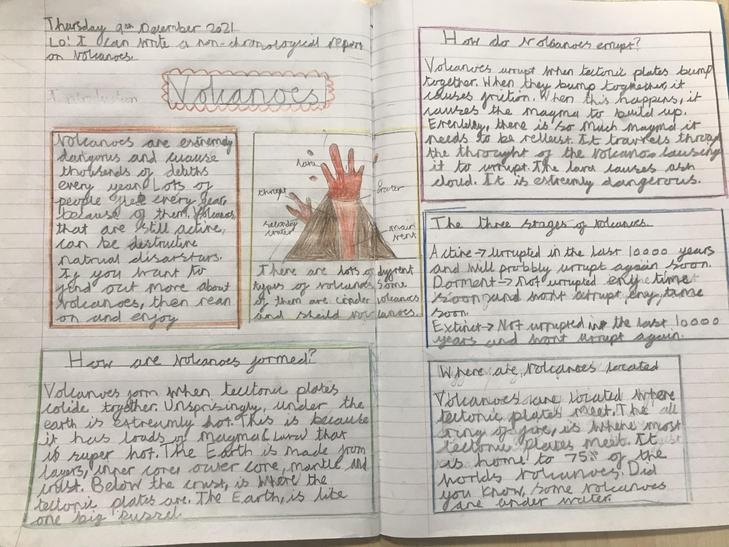 Thursday 9th December 2021
Lo: I can write a non-chronological report
on volcanoes.
Introduction
Volcanoes
Volcanoes are extremely
dangrous and cuause
thousands of deaths
every year. Lots of
people flee every year
because of them. Volcanos
that are still active,
can be destructive
natural disarstars.
If you want to
find out more about
volcanoes, then rean
on and enjoy
lava
throught
crater
secondary
crater
main
vent
There are lots of dyfrent
types of volcanos some
of them are cinder volcanoes
and sheild volcanoes.
How are volcanoes formed?
Volcanoes form when tecltonic plates
colide together. Unsprisingly, under the
earth is extreamly hot. This is because
it has loads of magma that
is super hot. The Earth is made from
layers, inner core, outer core, mantle and
crust. Below the crust, is where the
tectonic plates are. The Earth, is like
one big puzzel.
How do volcanoes errupt?
Volcanoes urrupt when tectonic plates bump
together. When they bump toghether, it
causes friction. When this happens, it
causes the magma to build up.
there is so much magma it
needs to be It travels through
the throught of the volcano causing
it to urrupt. The lava causes ash
cloud. It is extremly dangerous.
The three stages of volcanoes.
Active → urrupted in the last 10000 years
and will probbly urrupt again soon.
Dormant → Not urrupted eny time
soon and wont urrupt eny time
soon.
Extinct → Not urrupted in the last 10000
years and wont urrupt again.
Where are volcanoes located
Volcanoes are located where
tectonic plates meet. The
ring of fire, is where most
tectonic plates meet. It
is home to 75% of the
worlds volcanoes. Did
you know, some volcanoes
are under water.